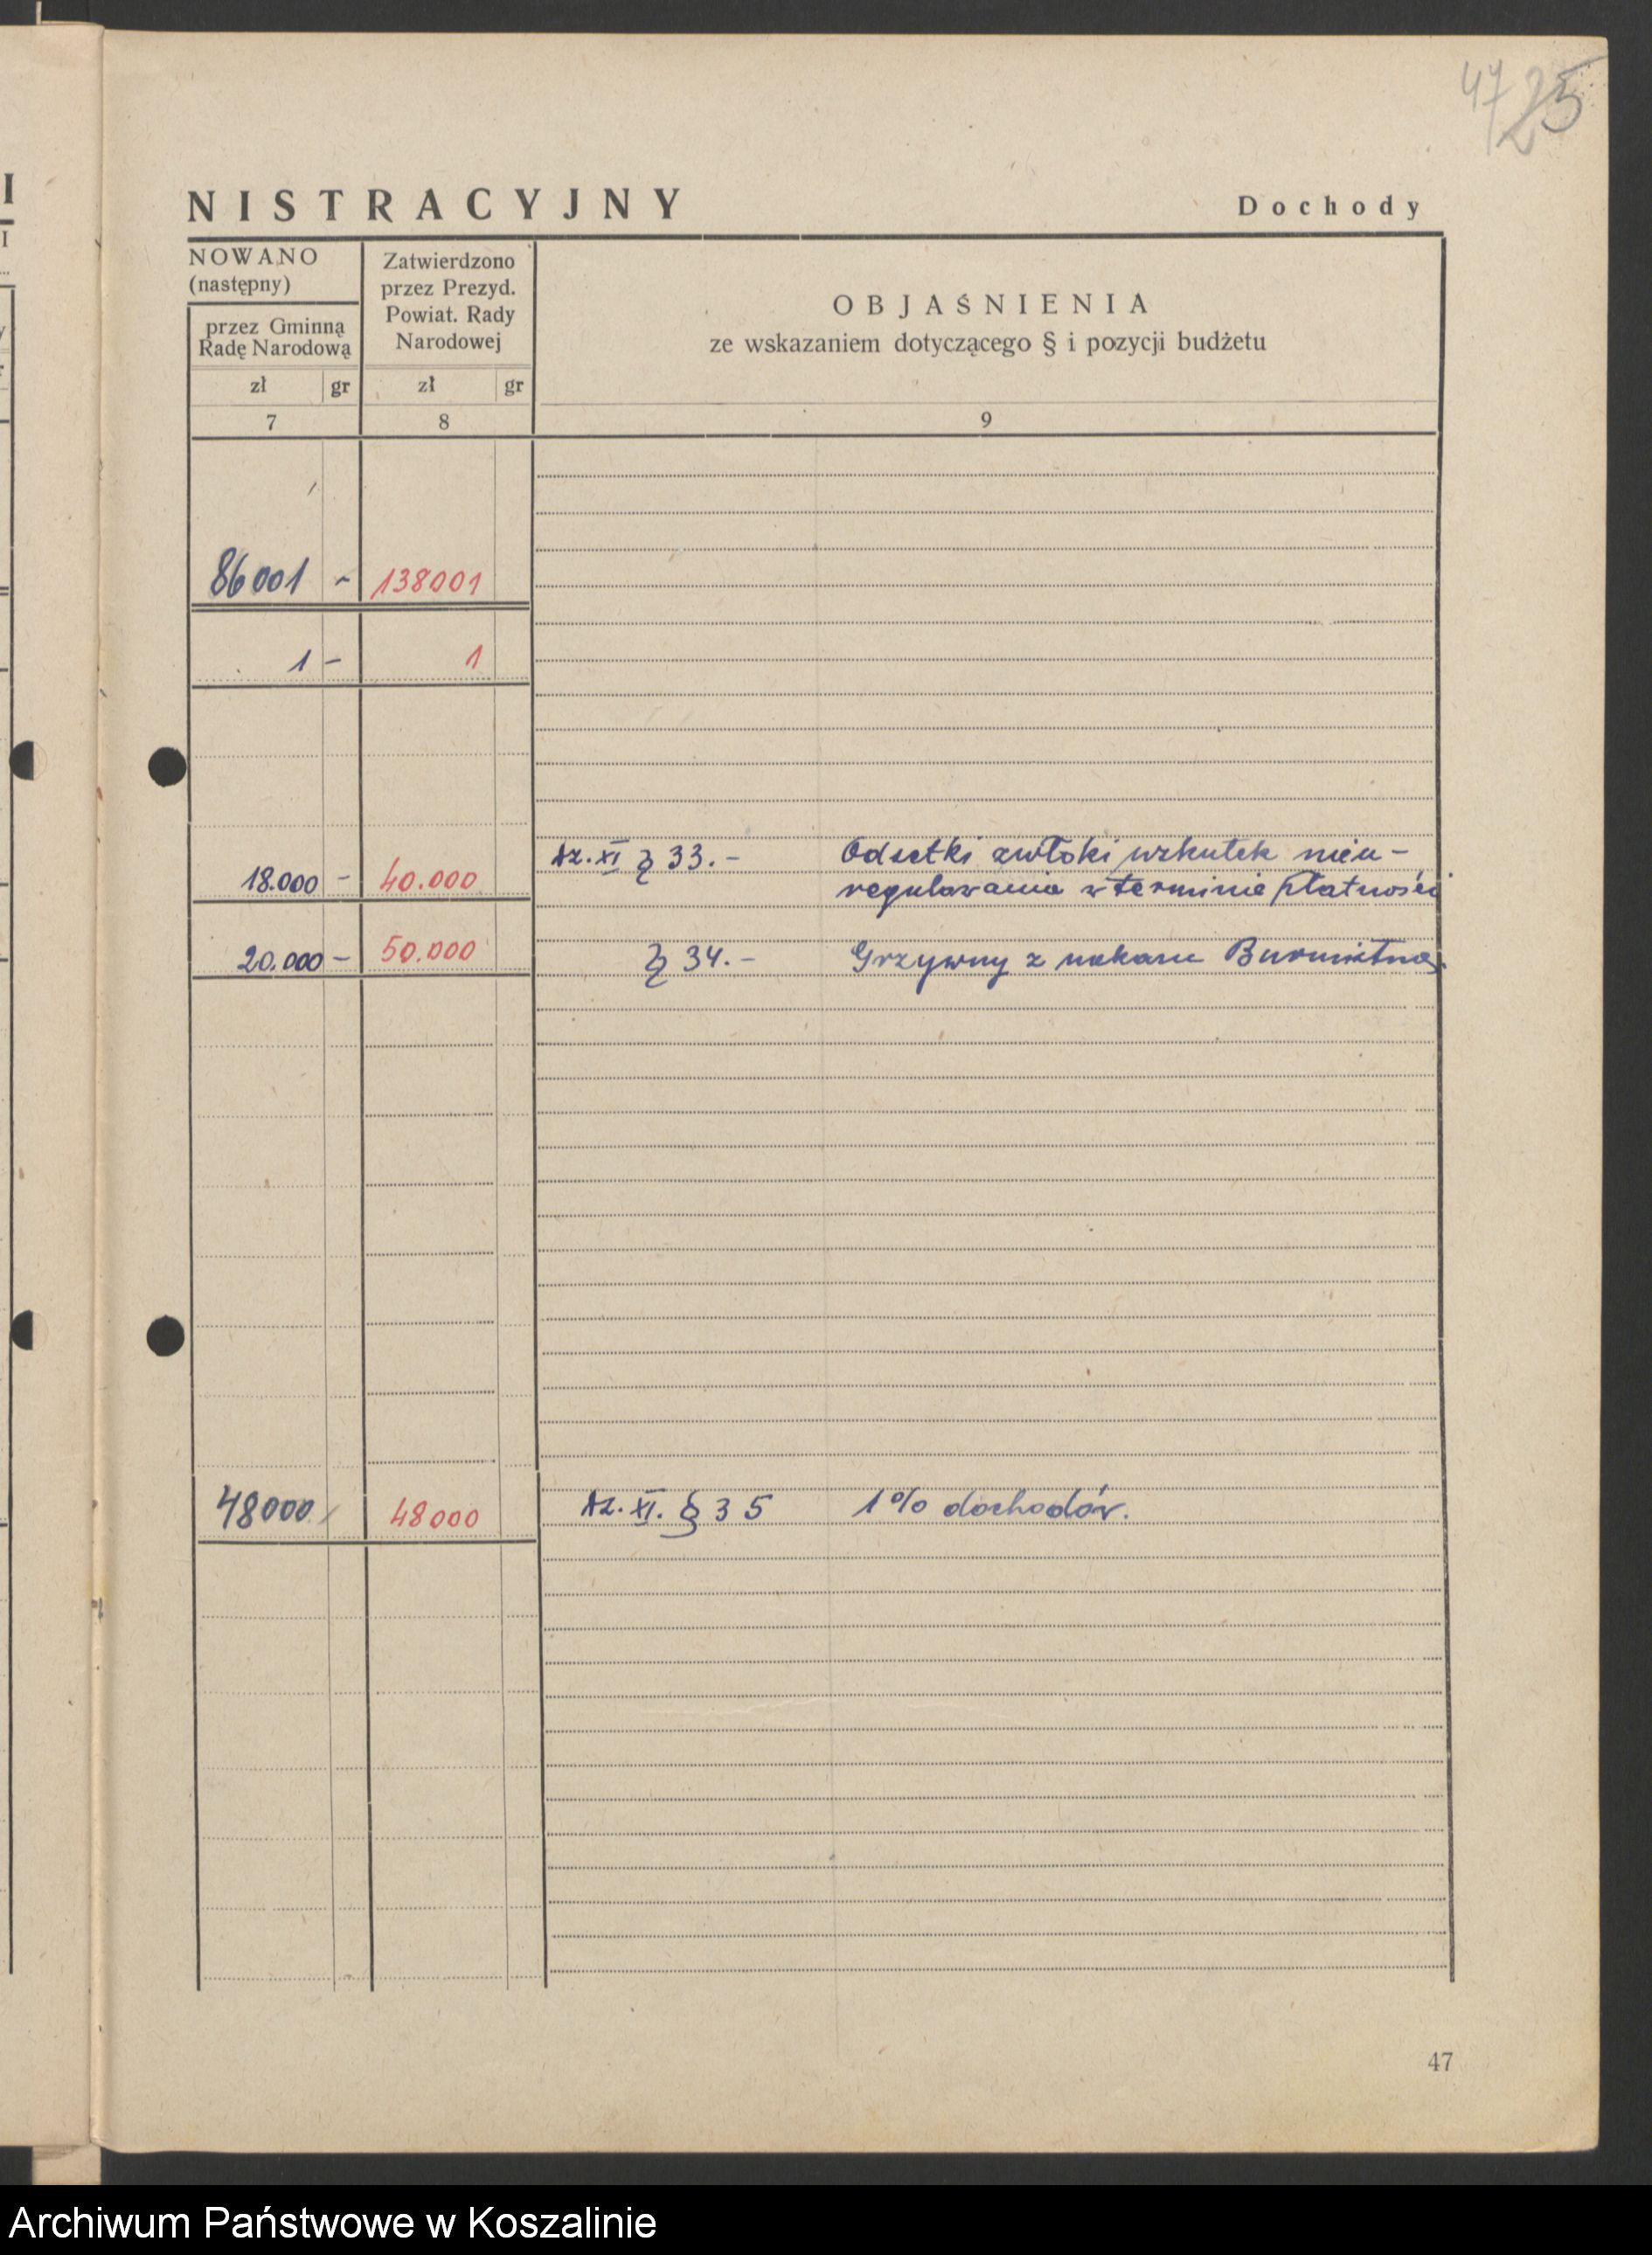 47 25
NISTRACYJNY Dochody
NOWANO
(następny)
przez Gminną
Radę Narodową
zł gr
7
Zatwierdzono
przez Prezyd.
Powiat. Rady
Narodowej
zł gr
8
OBJAŚNIENIA
ze wskazaniem dotyczącego § i pozycji budżetu
9
86001 - 138001
1 - 1
18.000 - 40.000 dz. XI § 33.- Odsetki zwłoki wskutek nieu-
regulowania w terminie płatności
20.000 - 50.000 § 34.- Grzywny z nakazu
48000 48000 dz. XI. § 35 1% dochodów.
47
Archiwum Państwowe w Koszalinie